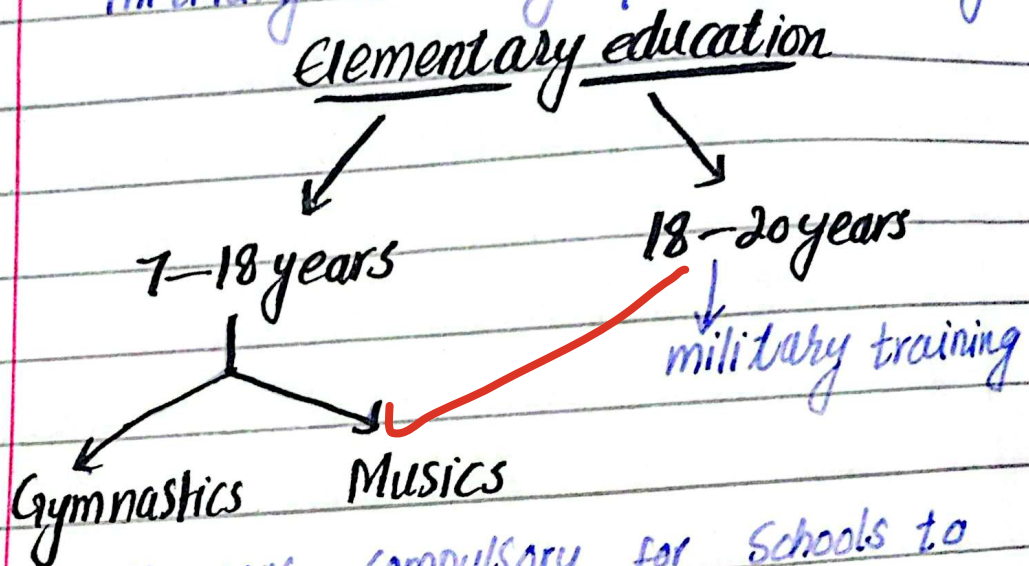 Elementary education
7-18 years
18-20 years
military training
Gymnastics
Musics
compulsory for Schools to